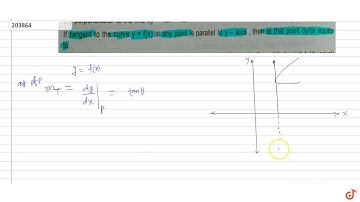 203864
If tangent to the curve y = f(x) at any point is parallel to y - axis, then at that point dy/dx equals
to
y = f(x)
at pt P m_T = dy/dx |_P = tanθ
y
x